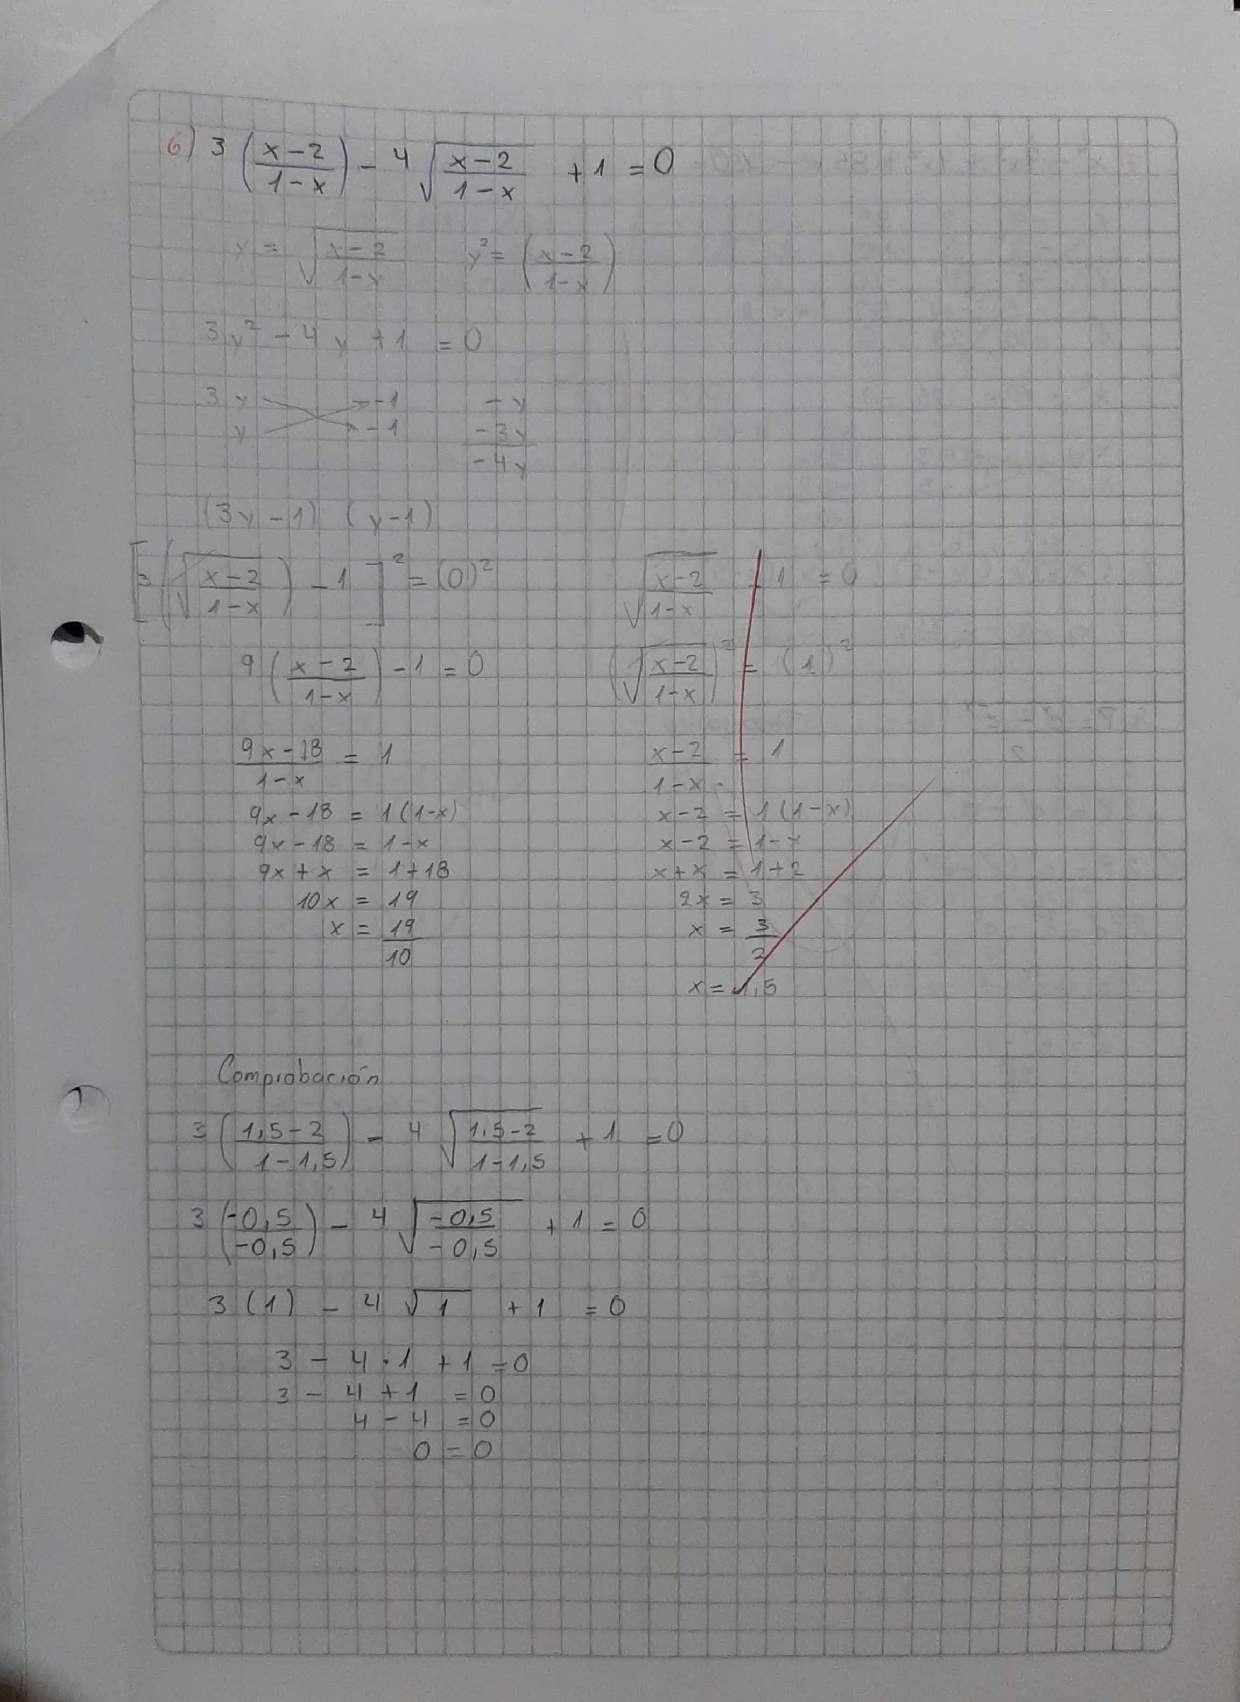 6) 3 (x-2 / 1-x) - 4 √(x-2 / 1-x) + 1 = 0
y = √(x-2 / 1-x)   y² = (x-2 / 1-x)
3y² - 4y + 1 = 0
3y   -1   -y
y   -1   -3y
-4y
(3y-1) (y-1)
[3 (√(x-2 / 1-x)) - 1]² = (0)²
9 (x-2 / 1-x) - 1 = 0
9x-18 / 1-x = 1
9x-18 = 1(1-x)
9x-18 = 1-x
9x+x = 1+18
10x = 19
x = 19/10
√(x-2 / 1-x) - 1 = 0
(√(x-2 / 1-x))² = (1)²
x-2 / 1-x = 1
x-2 = 1(1-x)
x-2 = 1-x
x+x = 1+2
2x = 3
x = 3/2
x = 1,5
Comprobación
3 (1,5-2 / 1-1,5) - 4 √(1,5-2 / 1-1,5) + 1 = 0
3 (-0,5 / -0,5) - 4 √(-0,5 / -0,5) + 1 = 0
3 (1) - 4 √1 + 1 = 0
3 - 4·1 + 1 = 0
3 - 4 + 1 = 0
4 - 4 = 0
0 = 0